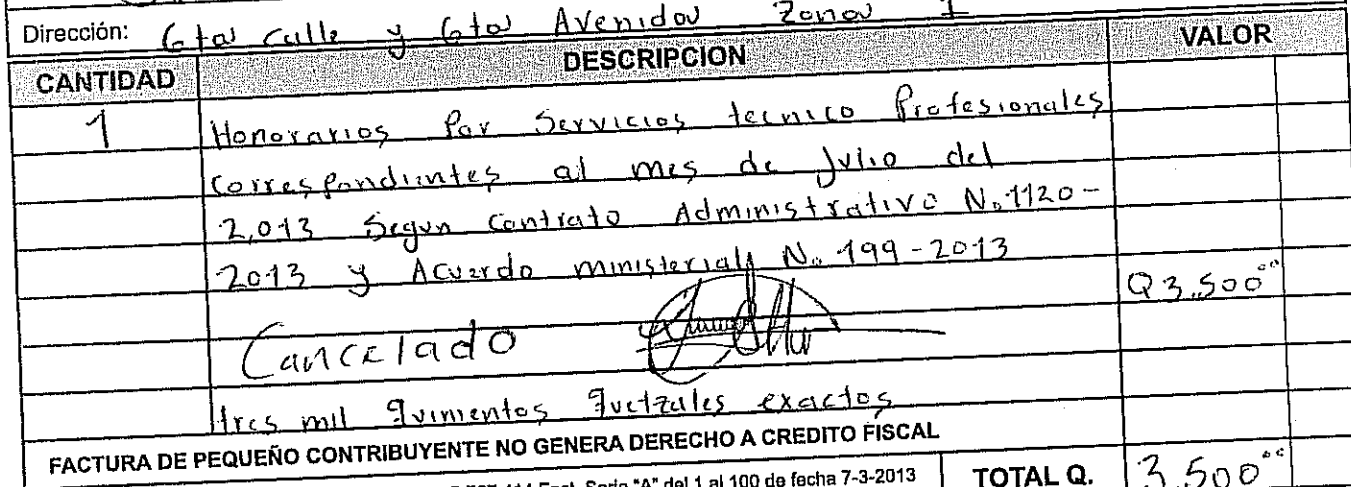 Dirección: 6ta calle y 6ta Avenida Zona 1
CANTIDAD DESCRIPCION VALOR
1 Honorarios Por Servicios tecnico Profesionales
correspondientes al mes de Julio del
2,013 Segun Contrato Administrativo No. 1120-
2013 y Acuerdo ministerial No. 199-2013
Q3,500.00
Cancelado
tres mil quinientos quetzales exactos
FACTURA DE PEQUEÑO CONTRIBUYENTE NO GENERA DERECHO A CREDITO FISCAL
Serie "A" del 1 al 100 de fecha 7-3-2013 TOTAL Q. 3,500.00